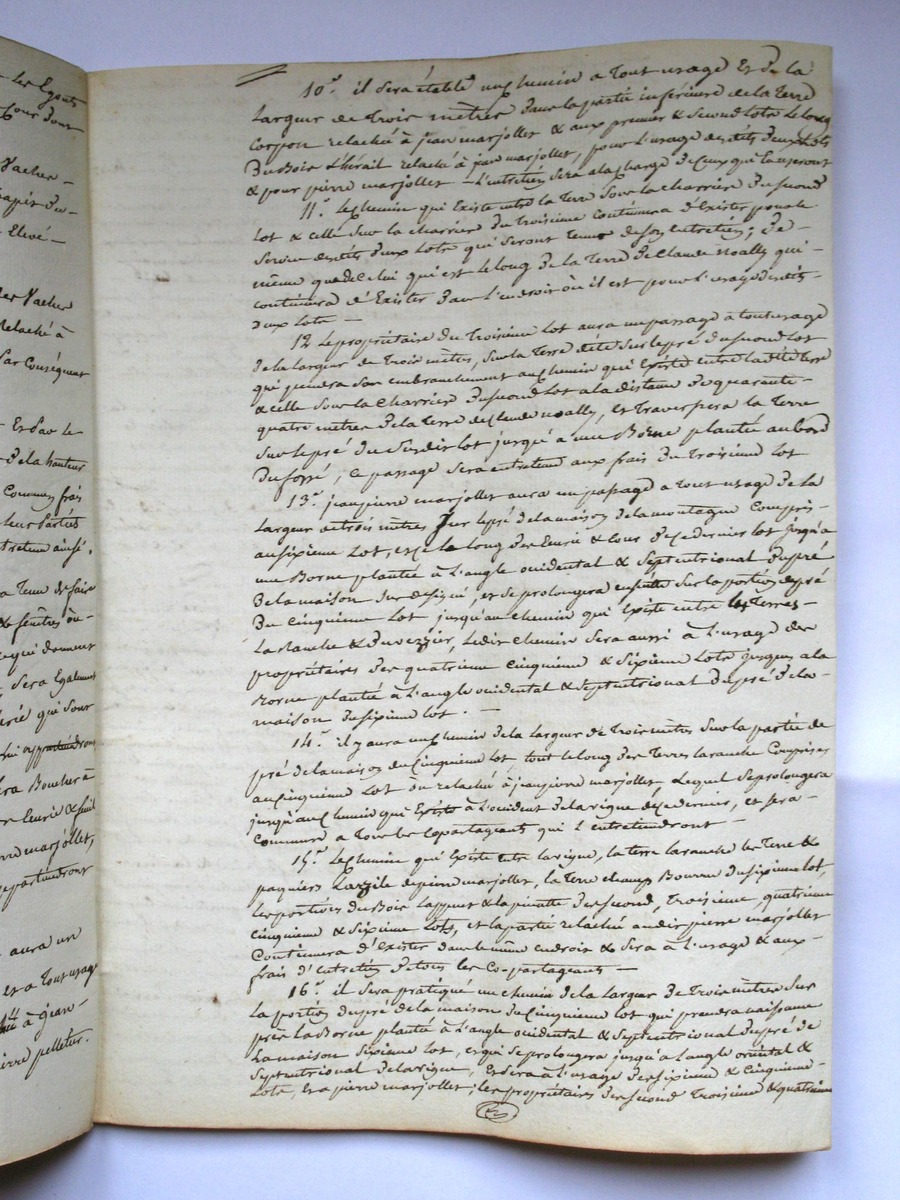 les Egouts
Cour dont
Vacher -
Elevé -
der Vacher
Relaché à
Par Conséquent
Et Par le
- de la hauteur
Commun frais
leur Partés
tretenu ainsi.
a tenu de faire
& fenêtres ou-
qui donnent
Sera Egalement
qui sont
lui appartiendront
ra Boucher à
Eurié & fruit
rre marjollet,
appartiendront
aura un
et a Tout usage
à jean-
ierre pelletur.
10°. il sera établi un chemin a Tout usage Et de la
Largeur de Trois mètres dans la partie inférieure de la Terre
Corpon relachée à jean marjollet & aux premier & second Lots le long
Du Bois L'hérail relaché à jean marjollet, pour L'usage desdits deux Lots
& pour pierre marjollet — L'entretien sera a la charge de Ceux qui l'useront
11°. Le chemin qui Existe entre la Terre Sous la charrière du second
Lot & celle Sur la charrière du Troisième Continuera d'Exister pour le
Service desdits deux Lots qui seront tenus de son entretien; de-
même que de celui qui est le long de la Terre de Claude noally qui-
continuera d'Exister dans l'endroit où il est pour l'usage desdits-
deux Lots —
12 Le propriétaire du Troisième Lot aura un passage a tout usage
de la largeur de Trois mètres, sur la Terre dite sur le pré du second Lot
qui prendra son embranchement au chemin qui Existe entre ladite terre
& celle Sous la Charrière du second Lot a la distance de quarante-
quatre mètres de la Terre de Claude noally, et Traversera la Terre
Sur le pré du susdit Lot jusqu'à une Borne plantée au bord
Du fossé, ce passage sera entretenu aux frais du Troisième Lot
13°. jean pierre marjollet aura un passage a Tout usage de la
largeur de trois mètres Sur le pré de la maison de la montagne Compris-
au sixième Lot, et le long des Eurié & cour de ce dernier Lot jusqu'à
une Borne plantée à L'angle occidental & Septentrional du pré
De la maison Sus désigné, et se prolongera ensuite Sur la portion de pré
Du cinquième Lot jusqu'au chemin qui Existe entre les Terres-
La ranche & , ledit Chemin sera aussi à L'usage des
propriétaires des quatrième cinquième & Sixième Lots jusques a la
Borne plantée à L'angle occidental & Septentrional du pré de la-
maison du sixième Lot. —
14°. il y aura un chemin de la largeur de Trois mètres Sur la partie de
pré de la maison du Cinquième Lot tout le long des Terres la ranche Comprises
au Cinquième Lot ou relaché à jean pierre marjollet, Lequel se prolongera
jusqu'au chemin qui Existe à L'occident de la vigne de ce dernier, et sera-
Commun a Tous les Copartageants qui L'entretiendront —
15°. Le chemin qui Existe entre la vigne, la terre la ranche les Terre &
paquiers Lazzile de pierre marjollet, la Terre champ Bourru du sixième Lot,
Les portions du Bois Lappret & la pirette des second, Troisième, quatrième
cinquième & Sixième Lots, et la partie relachée audit pierre marjollet
Continuera d'Exister dans le même endroit & sera à L'usage & aux-
frais d'Entretien de tous les Co-partageants —
16°. il sera pratiqué un chemin de la largeur de Trois mètres Sur
la portion de pré de la maison du Cinquième Lot qui prendra naissance
près la Borne plantée à L'angle occidental & Septentrional du pré de
La maison Sixième Lot, et qui se prolongera jusqu'à L'angle oriental &
Septentrional de la vigne, Et sera à L'usage des sixième & cinquième-
Lots, et a pierre marjollet; les propriétaires des second Troisième & quatrième